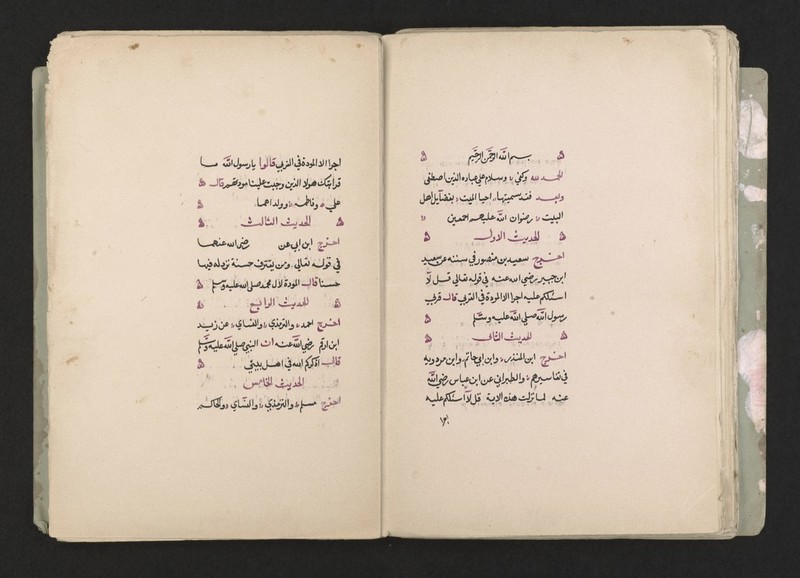 بسم الله الرحمن الرحيم
الحمد لله وكفى وسلام على عباده الذين اصطفى
وبعد فقد سميتها احيا الميت بفضايل اهل
البيت رضوان الله عليهم اجمعين
الحديث الاول
اخرج سعيد بن منصور في سننه عن سعيد
ابن جبير رضي الله عنه في قوله تعالى قل لا
اسئلكم عليه اجرا الا المودة في القربى قال قربى
رسول الله صلى الله عليه وسلم
الحديث الثاني
اخرج ابن المنذر وابن ابي حاتم وابن مردويه
في تفاسيرهم والطبراني عن ابن عباس رضي الله
عنه لما نزلت هذه الاية قل لا اسئلكم عليه
اجرا
اجرا الا المودة في القربى قالوا يا رسول الله ما
قرابتك هولا الذين وجبت علينا مودتهم قال
علي وفاطمه وولداهما
الحديث الثالث
اخرج ابن ابي عن رضي الله عنهما
في قوله تعالى ومن يقترف حسنة نزد له فيها
حسنا قال المودة لال محمد صلى الله عليه وسلم
الحديث الرابع
اخرج احمد والترمذي والنساي عن زيد
ابن ارقم رضي الله عنه ان النبي صلى الله عليه وسلم
قال اذكركم الله في اهل بيتي
الحديث الخامس
اخرج مسلم والترمذي والنساي والحاكم